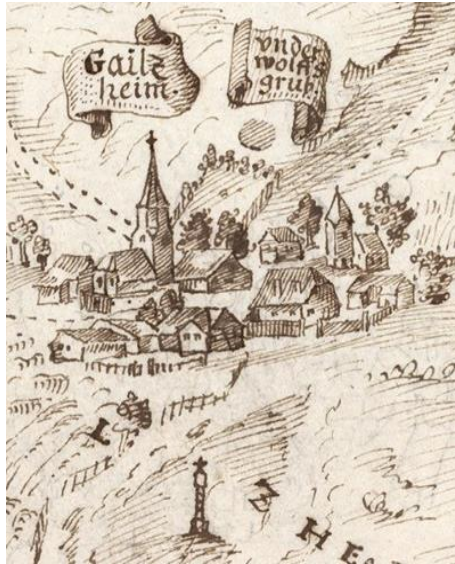 Gailz
heim.
vnder
wolffs
grub.
L
Z
H E